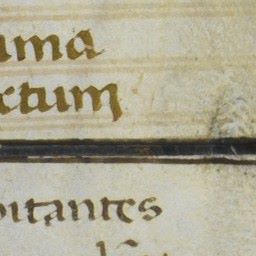 uma
ctum
bitantes